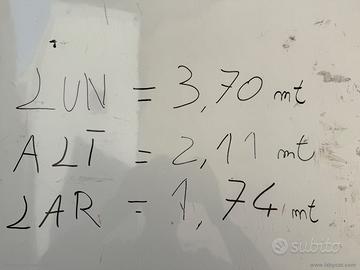 LUN = 3,70 mt
ALT = 2,11 mt
LAR = 1,74 mt
subito